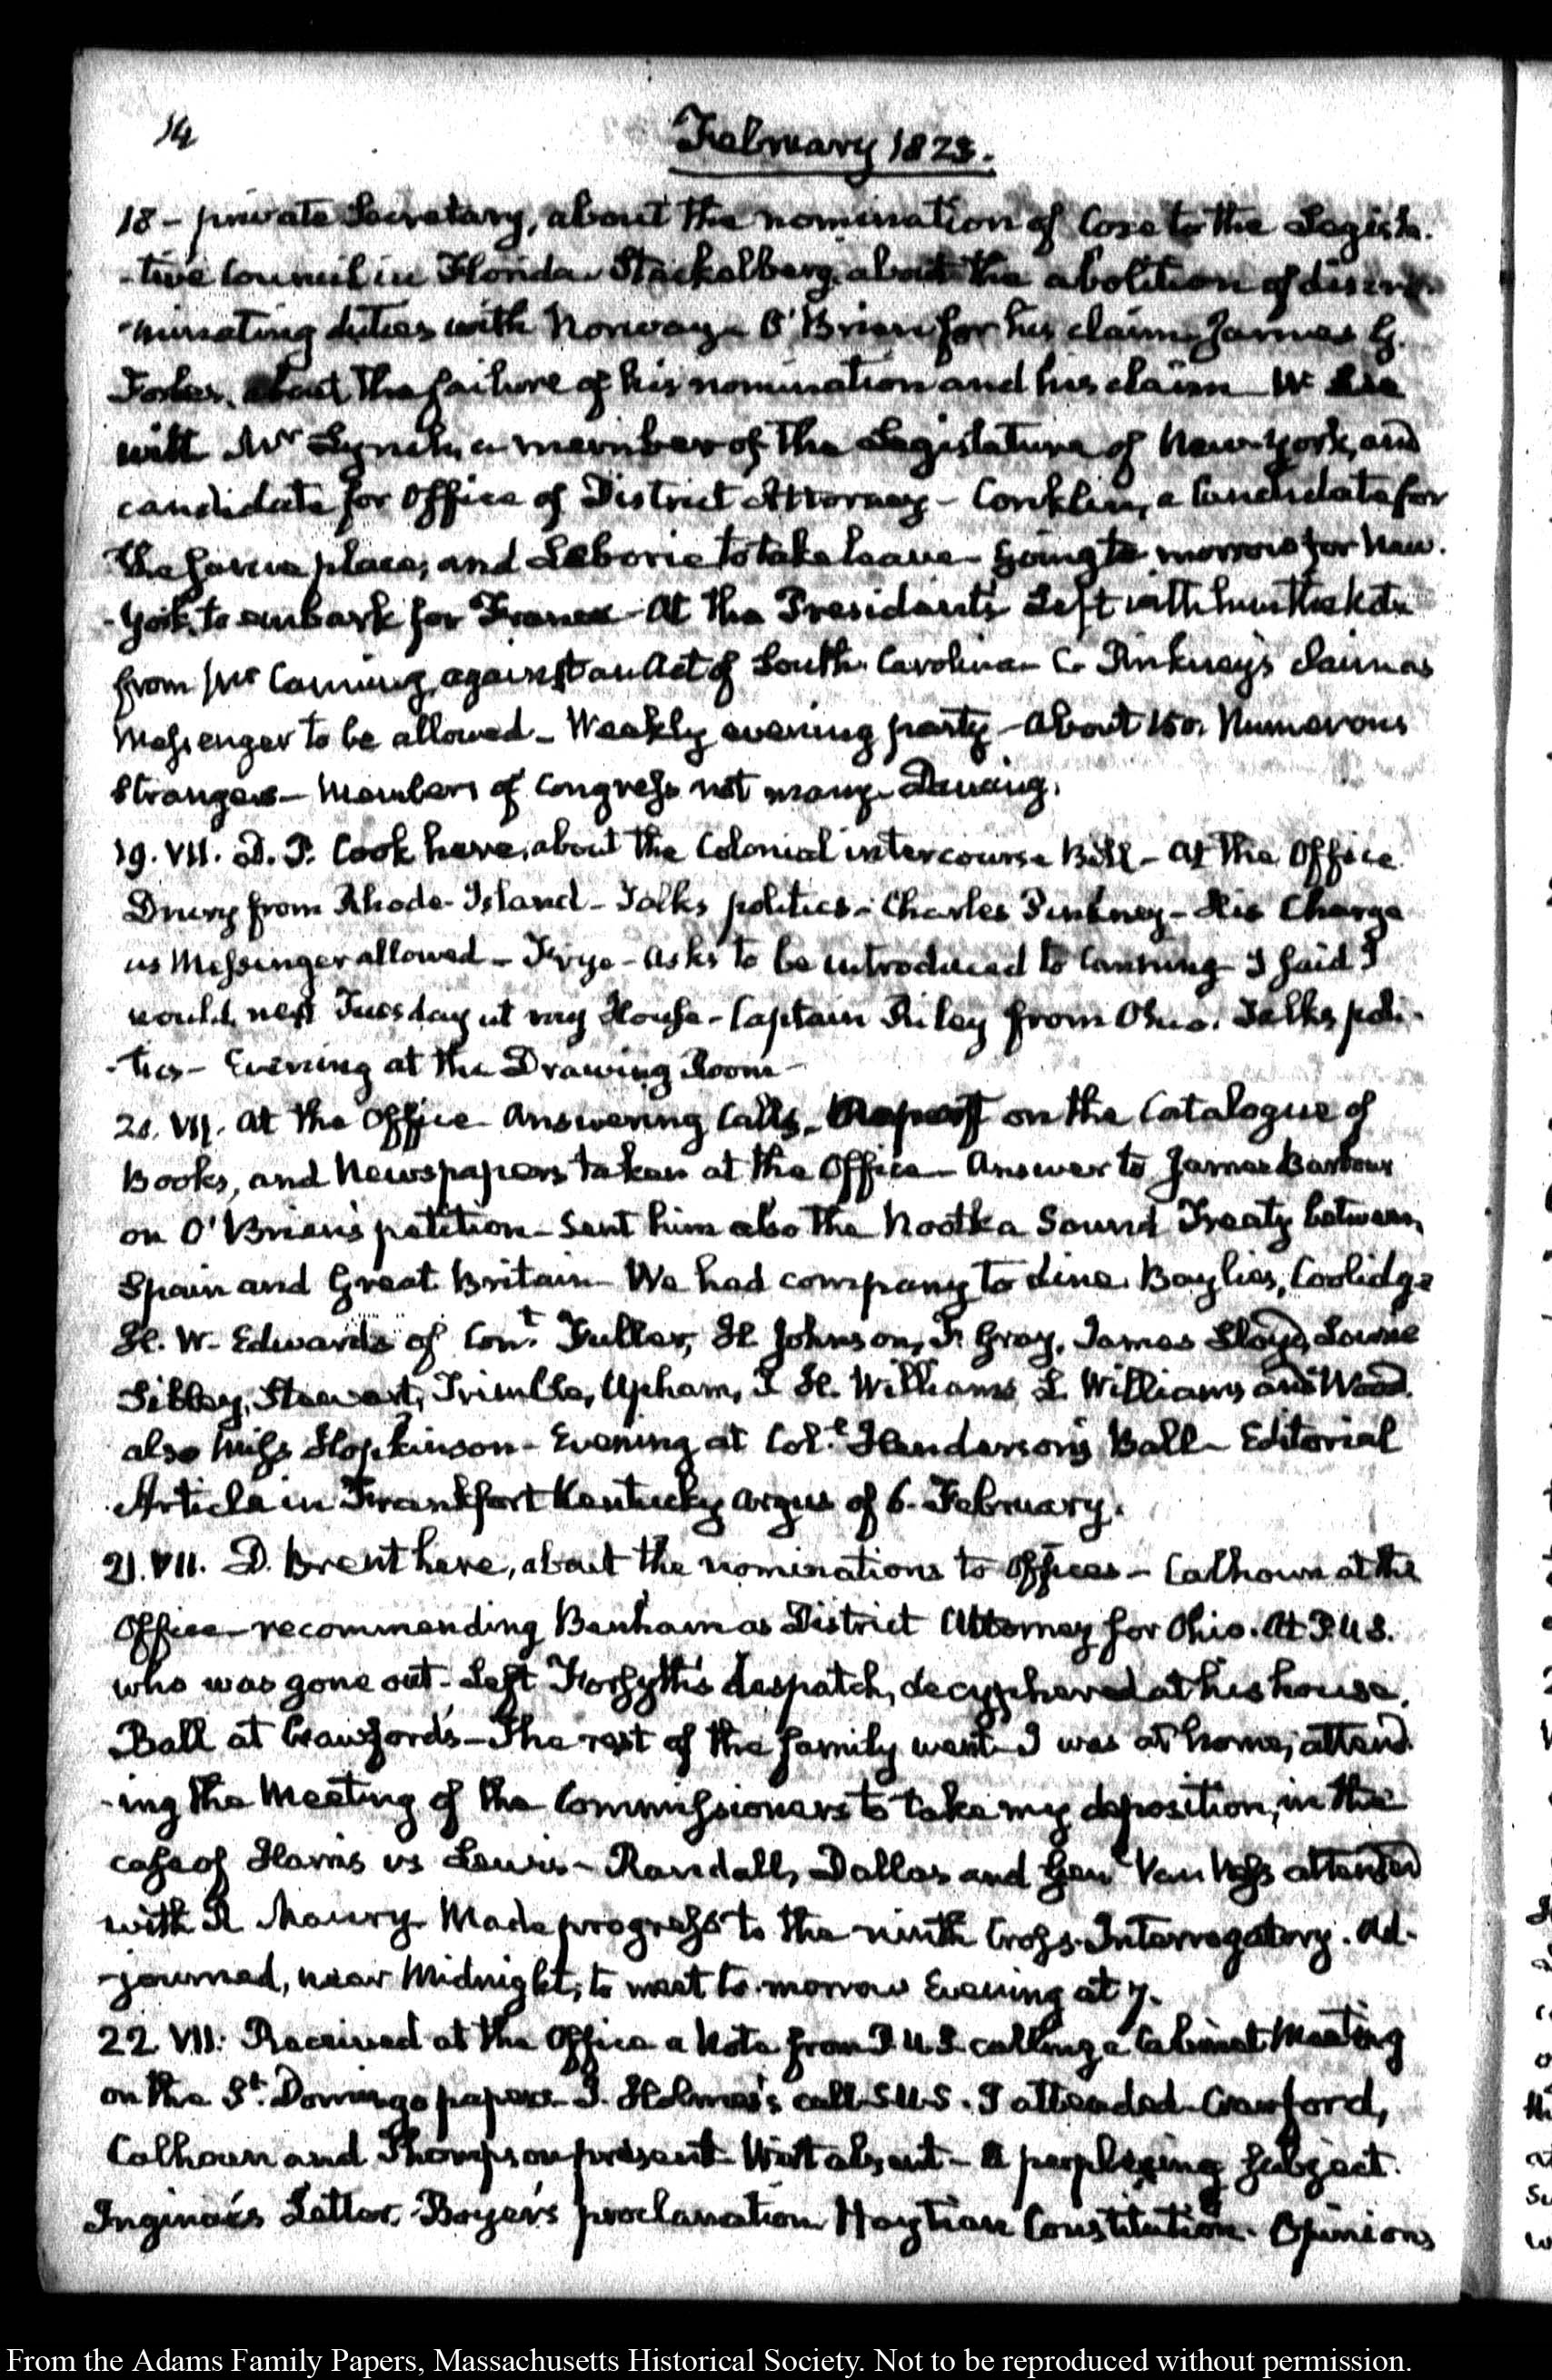 14
February 1823.
18 - private Secretary, about the nomination of Coxe to the Legisla-
-tive Council in Florida. Stackelberg, about the abolition of discri-
-minating duties with Norway - O'Brien for his claim James G.
Forbes, about the failure of his nomination and his claim - Mr Lee
with Mr Lynch, a member of the Legislature of New-York, and
candidate for Office of District Attorney - Conklin, a Candidate for
the same place, and Laborie to take leave - Going to morrow for New-
-York, to embark for France - At the President's Left with him the Note
from Mr Canning, against an Act of South Carolina - C. Pinkney's claim as
Messenger to be allowed - Weekly evening party - About 150. Numerous
Strangers - Members of Congress not many - Dancing.
19. VII. D. P. Cook here, about the Colonial intercourse Bill - At the Office
Drury from Rhode-Island - Talks politics - Charles Pinkney - His Charge
as Messenger allowed - Frye - Asks to be introduced to Canning - I said I
would, next Tuesday at my House - Captain Riley from Ohio. Talks poli-
-tics - Evening at the Drawing Room -
20. VII. At the Office - Answering Calls - Report on the Catalogue of
Books, and Newspapers taken at the Office - Answer to James Barbour
on O'Brien's petition - Sent him also the Nootka Sound Treaty between
Spain and Great Britain - We had company to dine. Baylies, Coolidge
H. W. Edwards of Cont. Fuller, H. Johnson, F. Gray, James Lloyd, Lowrie
Sibley, Stewart, Trimble, Upham, I. H. Williams L. Williams and Wood.
also Miss Hopkinson - Evening at Coll. Henderson's Ball - Editorial
Article in Frankfort Kentucky Argus of 6. February.
21. VII. D. Brent here, about the nominations to Offices - Calhoun at the
Office - recommending Benham as District Attorney for Ohio. At P.U.S.
who was gone out - Left Forsyth's despatch, decyphered at his house.
Ball at Crawford's - The rest of the family went - I was at home, attend-
-ing the Meeting of the Commissioners to take my deposition, in the
case of Harris vs Lewis - Randall, Dallas and Genl Van Ness attended
with R Maury - Made progress to the ninth Cross-Interrogatory. Ad-
-journed, near Midnight, to meet to-morrow Evening at 7.
22. VII. Received at the Office a Note from P.U.S. calling a Cabinet Meeting
on the St. Domingo papers - J. Holmes's call S.U.S. I attended - Crawford,
Calhoun and Thompson present - Wirt absent - A perplexing subject.
Inginac's Letter. Boyer's proclamation Haytian Constitution. Opinions
From the Adams Family Papers, Massachusetts Historical Society. Not to be reproduced without permission.